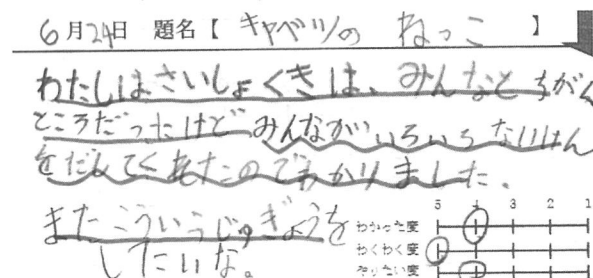 6月24日 題名【 キャベツの ねっこ 】
わたしはさいしょくきは、みんなとちがん
ところだったけど みんながいろいろ ないけん
をだしてくれたのでわかりました。
またこういうじゅぎょうを
したいな。
5 4 3 2 1
わかった度
わくわく度
やりたい度